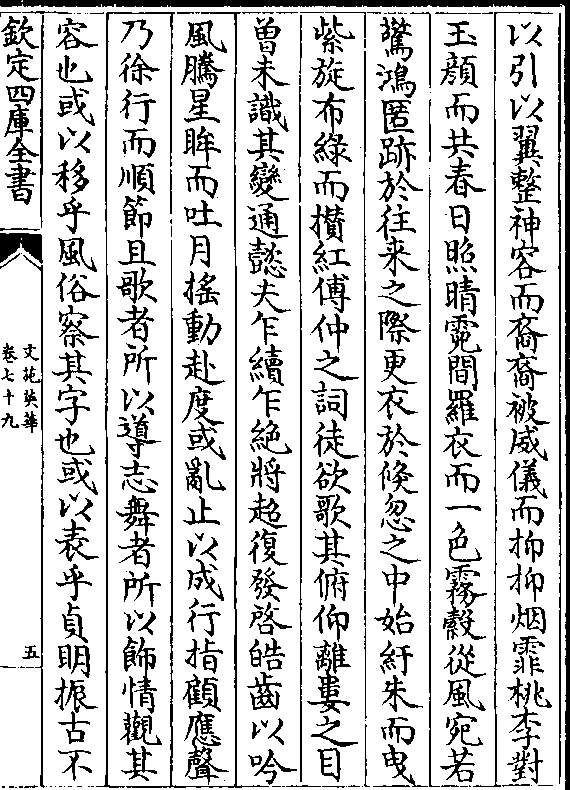 以引以翼整神容而裔裔被威儀而抑抑烟霏桃李對
玉顔而共春日照晴霓間羅衣而一色霧縠從風宛若
驚鴻匿跡於往来之際更衣於倐忽之中始紆朱而曳
紫旋布緑而攅紅傅仲之詞徒欲歌其俯仰離婁之目
曽未識其變通懿夫乍續乍絶將超復發啓皓齒以吟
風騰星眸而吐月揺動赴度或亂止以成行指顧應聲
乃徐行而順節且歌者所以導志舞者所以飾情觀其
容也或以移乎風俗察其字也或以表乎貞明振古不
欽定四庫全書
文苑英華
卷七十九
五